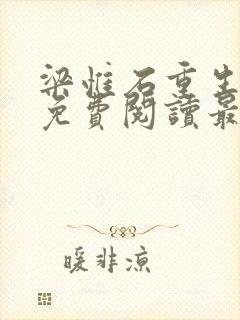 梁惟石重生
免費閱讀最
暖非涼